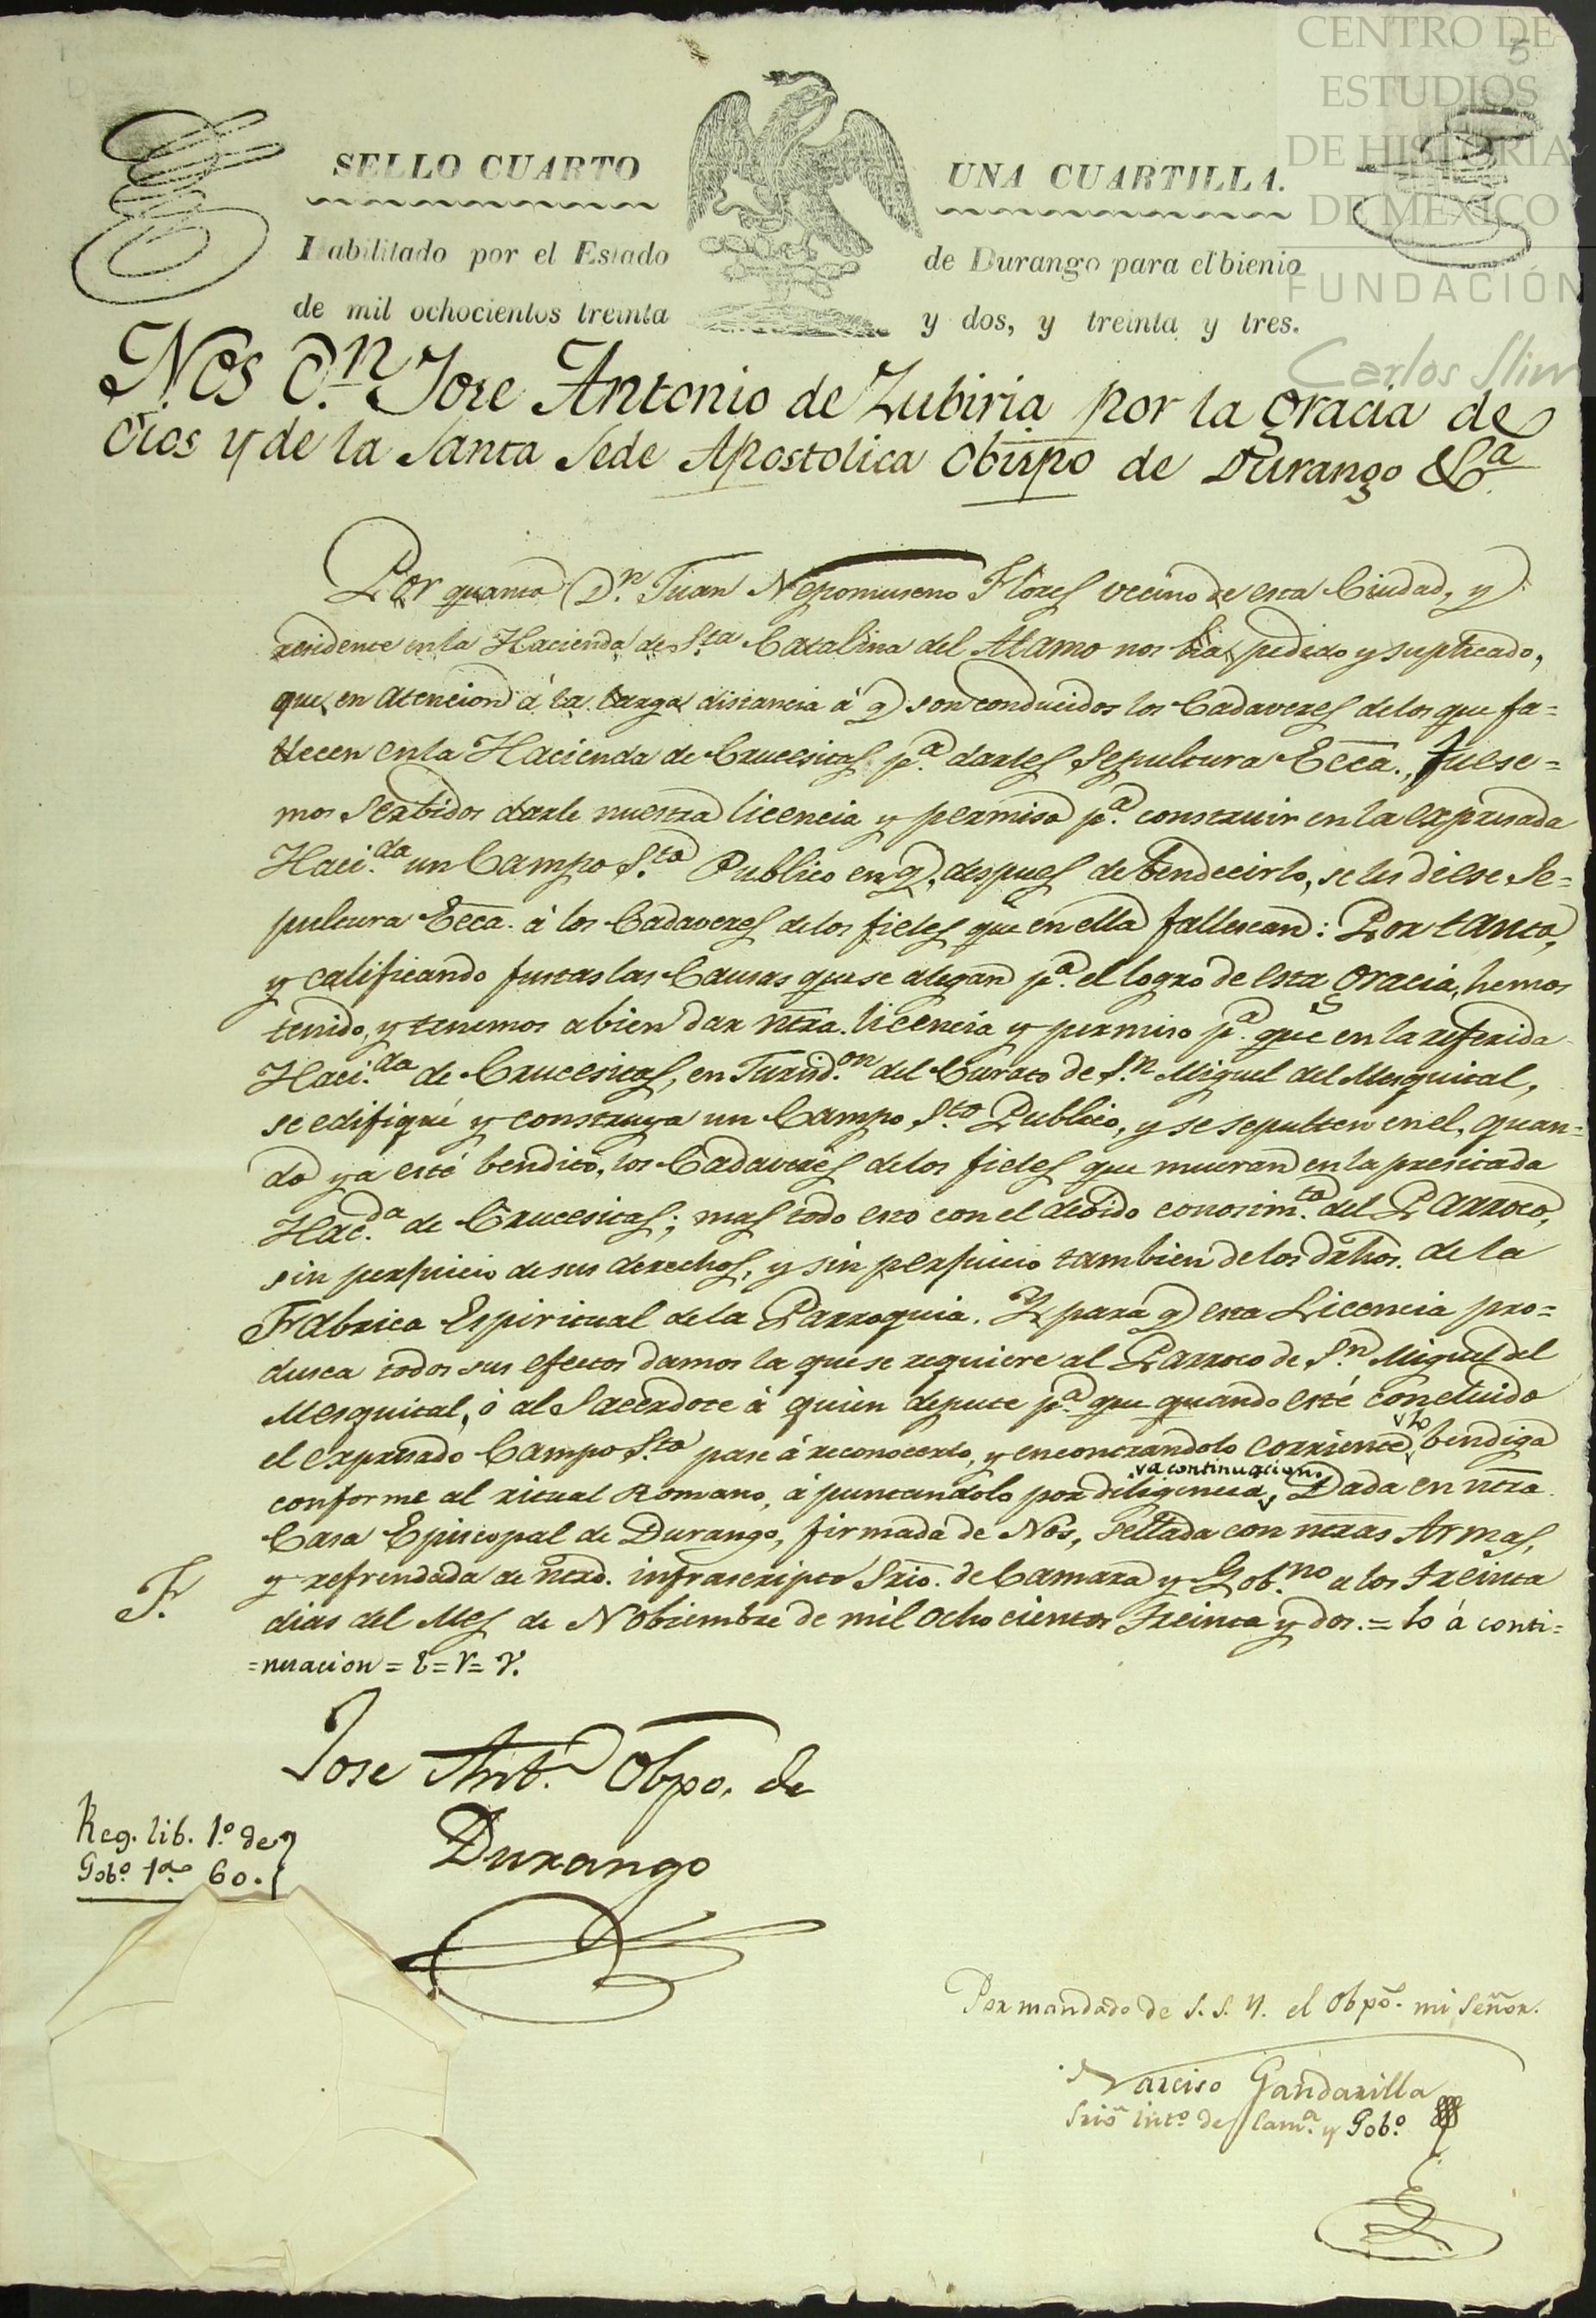 CENTRO DE
5
ESTUDIOS
DE HISTORIA
DE MEXICO
FUNDACIÓN
Carlos Slim
SELLO CUARTO UNA CUARTILLA.
Habilitado por el Estado de Durango para el bienio
de mil ochocientos treinta y dos, y treinta y tres.
Nos D.n Jose Antonio de Zubiria por la gracia de
Dios y de la Santa Sede Apostolica Obispo de Durango &.a
Por quanto D.n Juan Nepomuseno Flores vecino de esta Ciudad, y
residente en la Hacienda de S.ta Catalina del Alamo nos ha pedido y suplicado,
que en atencion á la larga distancia á q. son conducidos los Cadaveres de los que fa=
llecen en la Hacienda de Crucesitas p.a darles Sepultura Ecca., fuese=
mos Serbidos darle nuestra licencia y permiso p.a construir en la expresada
Haci.da un Campo S.to Publico en q. despues de bendecirlo, se les diese Se=
pultura Ecca. á los Cadaveres de los fieles que en ella fallescan: Por tanto,
y calificando justas las Causas que se alegan p.a el logro de esta gracia, hemos
tenido, y tenemos a bien dar ntra. licencia y permiso p.a que en la referida
Haci.da de Crucesitas, en Jurisd.on del Curato de S.n Miguel del Mesquital,
se edifique y construya un Campo S.to Publico, y se sepulten en el, quan=
do ya esté bendito, los Cadaveres de los fieles que mueran en la presitada
Hac.da de Crucesitas; mas todo esto con el debido conosim.to del Parroco,
sin perjuicio de sus derechos, y sin perjuicio tambien de los drhos. de la
Fabrica Espiritual de la Parroquia. Y para q. esta Licencia pro=
dusca todos sus efectos damos la que se requiere al Parroco de S.n Miguel del
Mesquital, ó al Sacerdote á quien depute p.a que quando esté concluido
el expresado Campo S.to pase á reconocerlo, y encontrandolo corriente, lo bendiga
conforme al ritual Romano, á puntandolo por diligencia a continuacion. Dada en ntra.
Casa Episcopal de Durango, firmada de Nos, sellada con ntras Armas,
y refrendada de ntro. infrascripto Srio. de Camara y Gob.no a los treinta
F.
dias del Mes de Nobiembre de mil ocho cientos treinta y dos. = lo á conti=
=nuacion = E = r = v.
Jose Ant.o Obpo. de
Durango
Reg. lib. 1.o de
Gob.o 60.
Por mandado de S. S. Y. el Obpo. mi Señor.
Narciso Gandarilla
Srio int.o de Cam.a y Gob.o